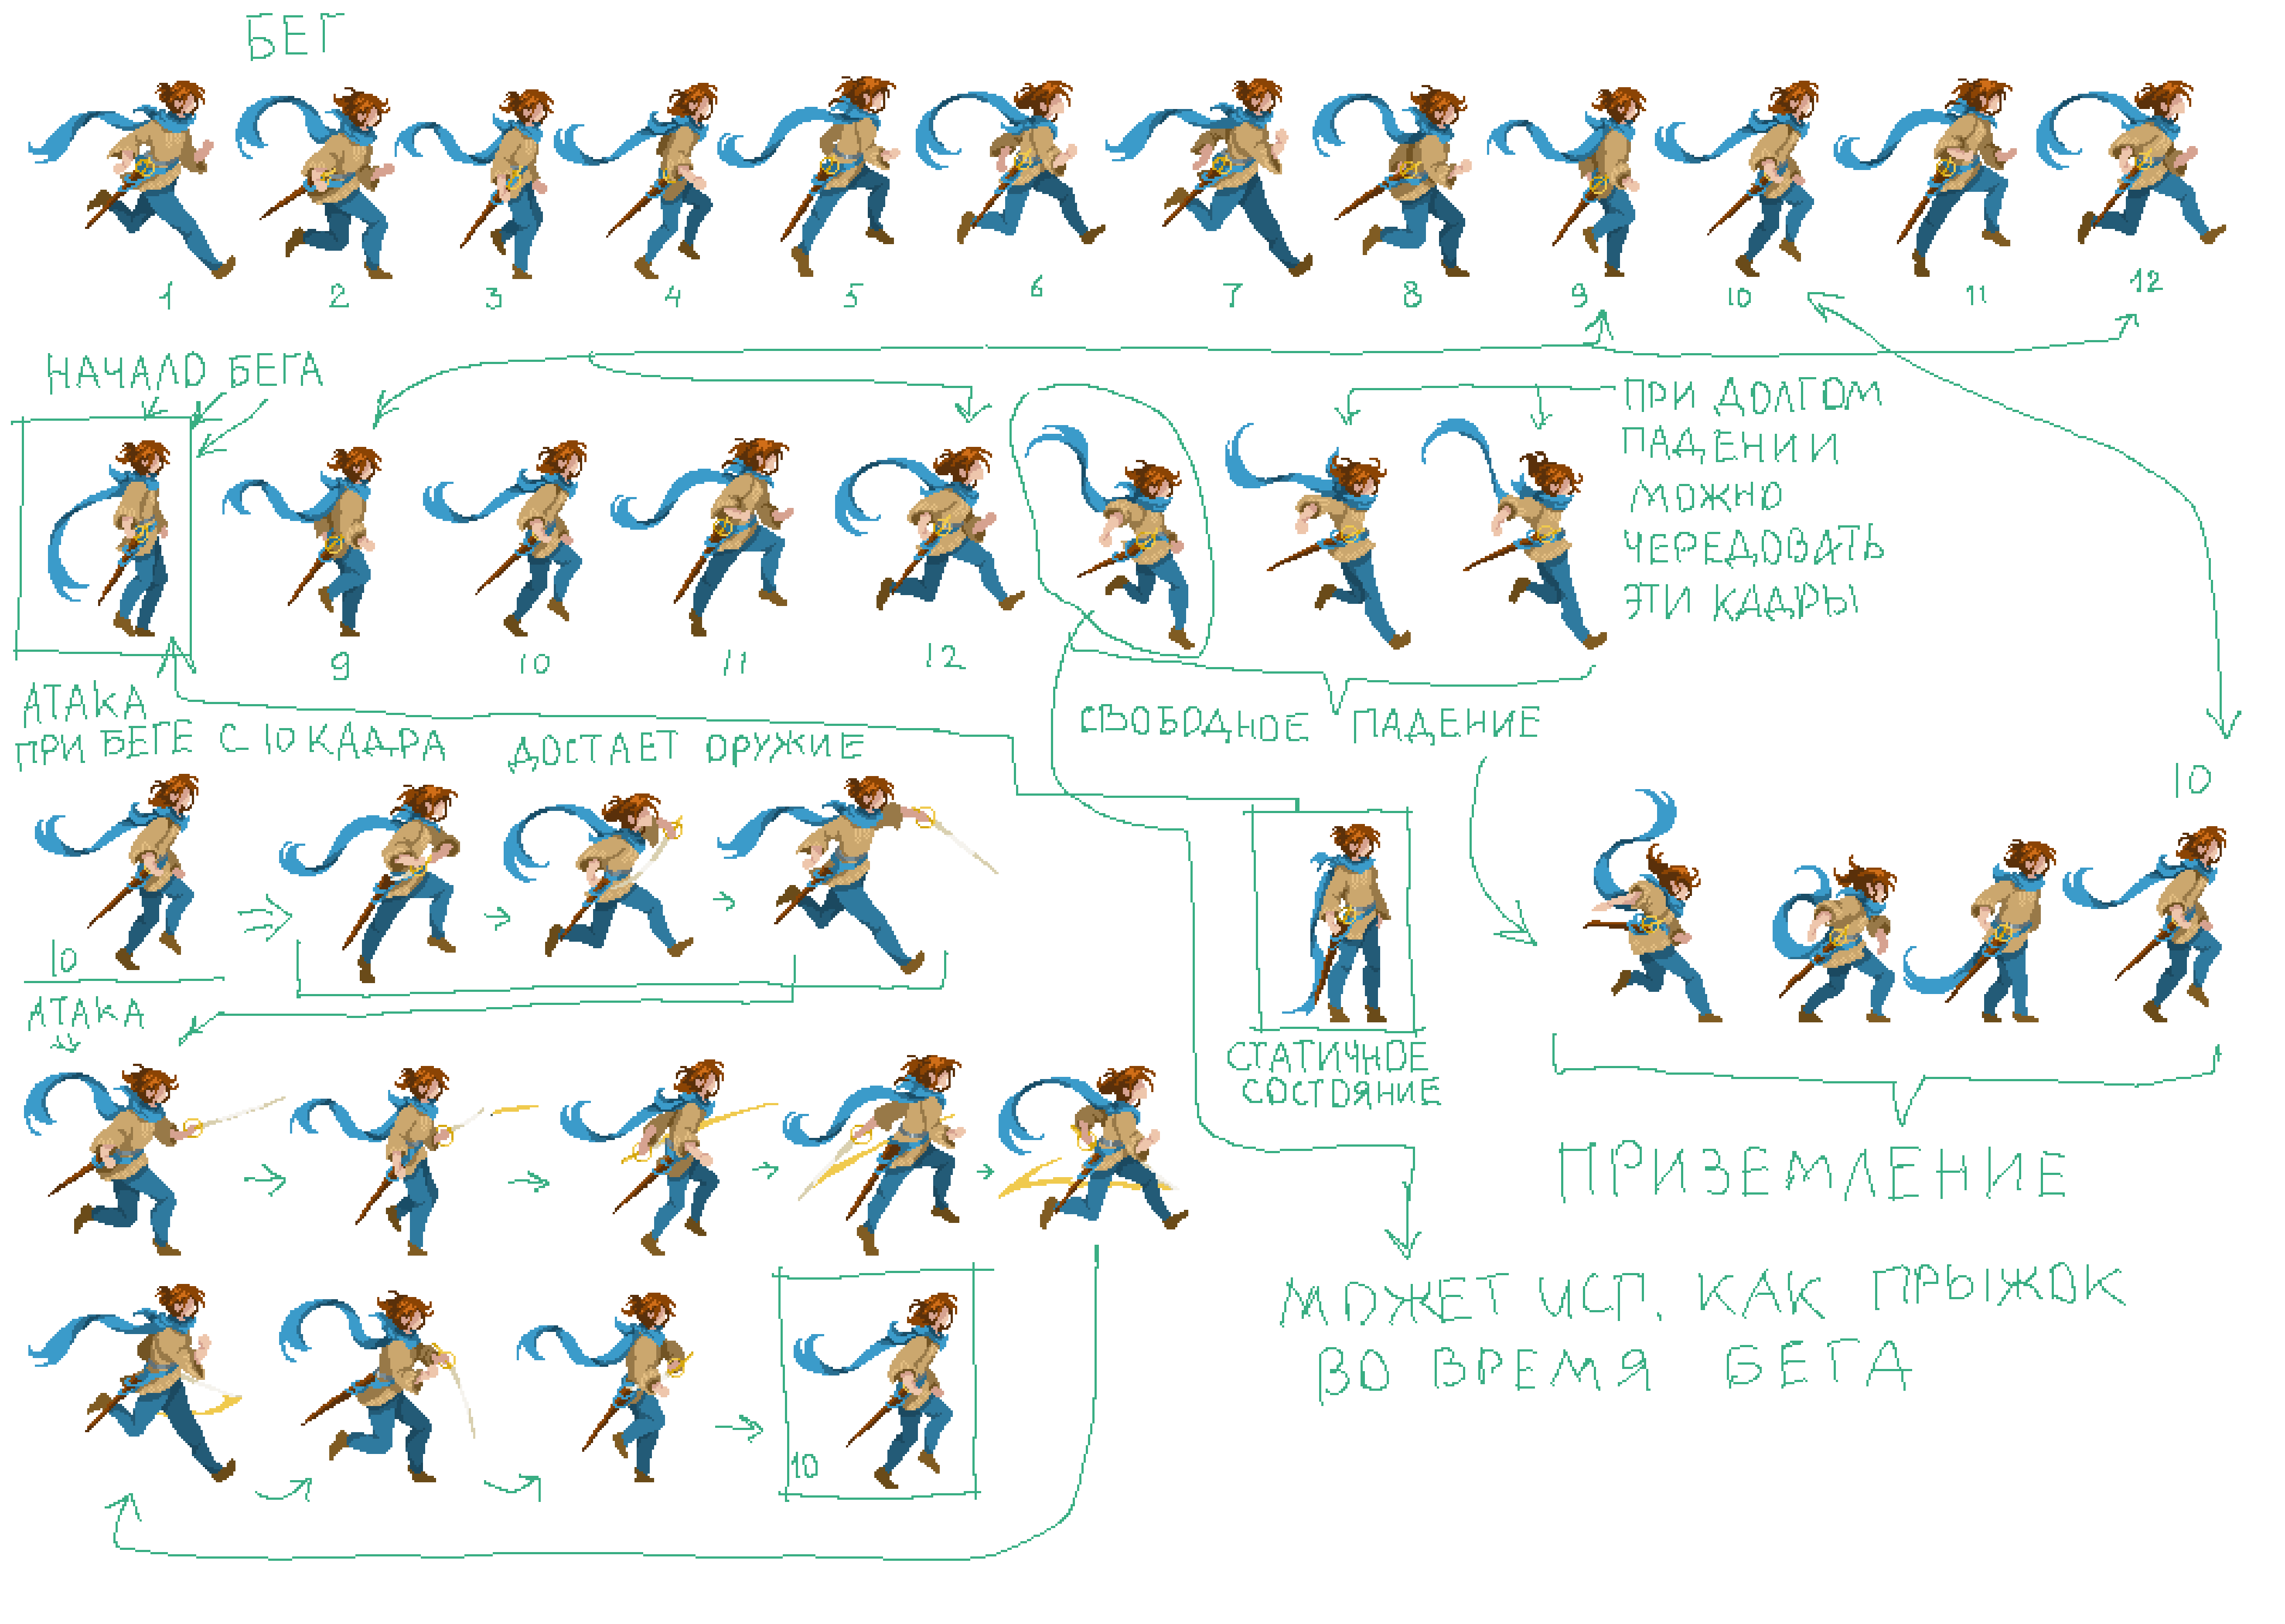 БЕГ
1 2 3 4 5 6 7 8 9 10 11 12
НАЧАЛО БЕГА
ПРИ ДОЛГОМ
ПАДЕНИИ
МОЖНО
ЧЕРЕДОВАТЬ
ЭТИ КАДРЫ
9 10 11 12
СВОБОДНОЕ ПАДЕНИЕ
АТАКА
ПРИ БЕГЕ С 10 КАДРА
ДОСТАЕТ ОРУЖИЕ
10
10
АТАКА
СТАТИЧНОЕ
СОСТОЯНИЕ
ПРИЗЕМЛЕНИЕ
МОЖЕТ ИСП. КАК ПРЫЖОК
ВО ВРЕМЯ БЕГА
10